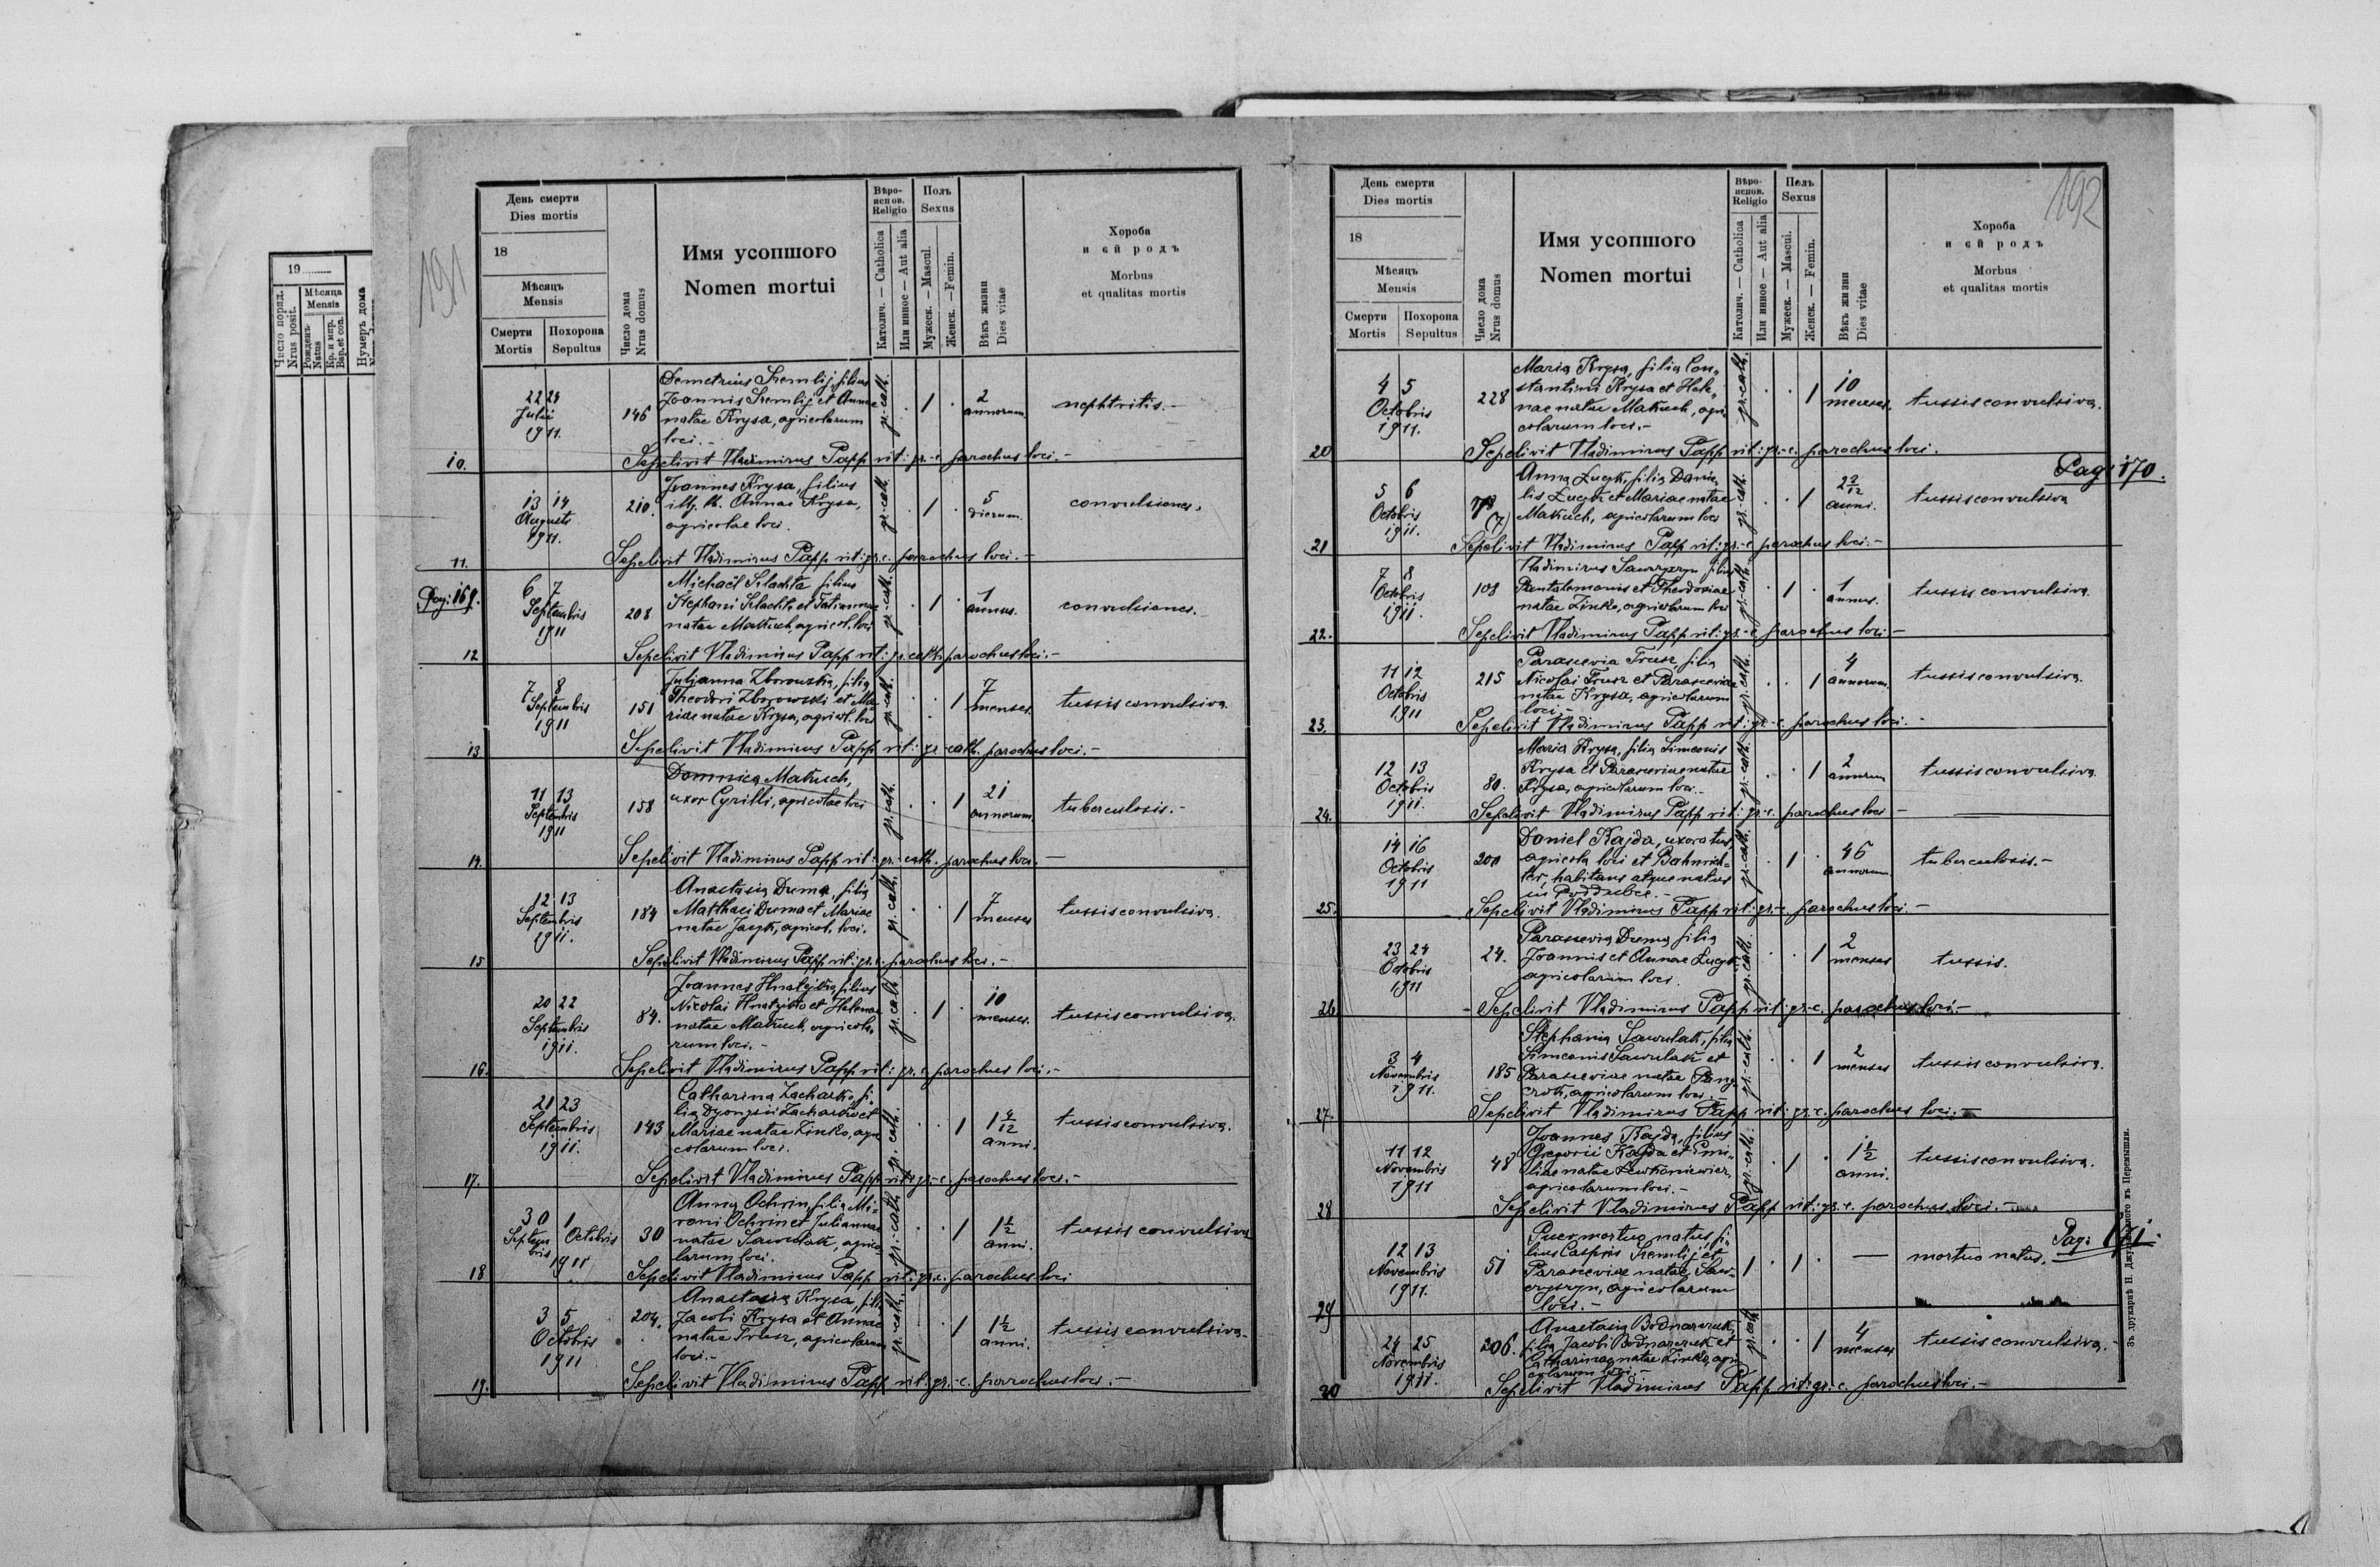 19
Число поряд.
Nrus posit.
Мѣсяца
Mensis
Рожденъ
Natus
Кр. и мѵр.
Bap. et con.
Нумеръ дома
191
День смерти
Dies mortis
18
Мѣсяцъ
Mensis
Смерти
Mortis
Похорона
Sepultus
Число дома
Nrus domus
Имя усопшого
Nomen mortui
Вѣро-
испов.
Religio
Католич. — Catholica
Или инное — Aut alia
Полъ
Sexus
Мужеск. — Mascul.
Женск. — Femin.
Вѣкъ жизни
Dies vitae
Хороба
и єй родъ
Morbus
et qualitas mortis
10.
22 24
Julii
1911.
146
Demetrius Sremlij, filius
Joannis Sremlij et Annae
natae Krysa, agricolarum
loci.-
gr.-cath.
1
2
annorum.
nephtritis.-
Sepelivit Vladimirus Papp rit: gr.-c. parochus loci.-
11.
13 14
Augusti
1911.
210.
Joannes Krysa, filius
illg. th. Annae Krysa,
agricolae loci.
gr.-cath.
1
5
dierum.
convulsiones.
Sepelivit Vladimirus Papp rit: gr.-c. parochus loci.-
Pag: 169.
12
6 7
Septembris
1911
208
Michaël Szlachta filius
Stephani Szlachta et Tatiannae
natae Makuch, agricol. loci
gr.-cath.
1
1
annus.
convulsiones.
Sepelivit Vladimirus Papp rit: gr. cath. parochus loci.-
13
7 8
Septembris
1911
151
Juljanna Zborowska, filia
Theodori Zborowski et Ma-
riae natae Krysa, agricol. loci
gr.-cath.
1
7
menses.
tussis convulsiva.
Sepelivit Vladimirus Papp rit: gr.-cath. parochus loci.-
14.
11 13
Septembris
1911
158
Domnica Makuch,
uxor Cyrilli, agricolae loci
gr.-cath.
1
21
annorum.
tuberculosis.-
Sepelivit Vladimirus Papp rit: gr.-cath. parochus loci.-
15
12 13
Septembris
1911.
184
Anastasia Duma, filia
Matthaei Duma et Mariae
natae Jacyk, agricol. loci.
gr.-cath.
1
7
menses
tussis convulsiva.
Sepelivit Vladimirus Papp rit: gr.-c. parochus loci.-
16.
20 22
Septembris
1911.
84.
Joannes Hnatejko, filius
Nicolai Hnatejko et Helenae
natae Makuch, agricola-
rum loci.-
gr.-cath.
1
10
menses.
tussis convulsiva.
Sepelivit Vladimirus Papp rit: gr.-c. parochus loci.-
17.
21 23
Septembris
1911.
143
Catharina Zacharko, fi-
lia Dyonysii Zacharko et
Mariae natae Zinko, agri-
colarum loci.
gr.-cath.
1
1 4/12
anni.
tussis convulsiva.
Sepelivit Vladimirus Papp rit: gr.-c. parochus loci.-
18
30 1
Septem Octobris
bris
1911
30
Anna Ochrin, filia Mi-
roni Ochrin et Juliannae
natae Sawulak, agrico-
larum loci.
gr.-cath.
1
1 1/2
anni.
tussis convulsiva
Sepelivit Vladimirus Papp rit: gr.-c. parochus loci
19.
3 5
Octobris
1911
204.
Anastasia Krysa, filia
Jacobi Krysa et Annae
natae Trusz, agricolarum
loci.-
gr.-cath.
1
1 1/2
anni.
tussis convulsiva.
Sepelivit Vladimirus Papp rit: gr.-c. parochus loci.-
192
День смерти
Dies mortis
18
Мѣсяцъ
Mensis
Смерти
Mortis
Похорона
Sepultus
Число дома
Nrus domus
Имя усопшого
Nomen mortui
Вѣро-
испов.
Religio
Католич. — Catholica
Или инное — Aut alia
Полъ
Sexus
Мужеск. — Mascul.
Женск. — Femin.
Вѣкъ жизни
Dies vitae
Хороба
и єй родъ
Morbus
et qualitas mortis
20
4 5
Octobris
1911.
228
Maria Krysa, filia Con-
stantini Krysa et Hele-
nae natae Makuch, agri-
colarum loci.-
gr.-cath.
1
10
menses.
tussis convulsiva.
Sepelivit Vladimirus Papp rit: gr.-c. parochus loci.
Pag: 170.
21
5 6
Octobris
1911.
(7)
Anna Lucyk, filia Danie-
lis Lucyk et Mariae natae
Makuch, agricolarum loci
gr.-cath.
1
2 3/12
anni.
tussis convulsiva
Sepelivit Vladimirus Papp rit: gr.-c. parochus loci.-
22.
7 8
Octobris
1911.
108
Vladimirus Sawryzryn filius
Pantalemonis et Theodosiae
natae Zinko, agricolarum loci
gr.-cath.
1
1
annus.
tussis convulsiva.
Sepelivit Vladimirus Papp rit: gr.-c. parochus loci.-
23.
11 12
Octobris
1911
215
Parascevia Trusz, filia
Nicolai Trusz et Parasceviae
natae Krysa, agricolarum
loci.-
gr.-cath.
1
4
annorum.
tussis convulsiva.
Sepelivit Vladimirus Papp rit: gr.-c. parochus loci.-
24.
12 13
Octobris
1911.
80.
Maria Krysa, filia Simeonis
Krysa et Parasceviae natae
Krysa, agricolarum loci.-
gr.-cath.
1
2
annorum
tussis convulsiva.
Sepelivit Vladimirus Papp rit: gr.-c. parochus loci -
25.
14 16
Octobris
1911
200
Daniel Kajda, uxoratus
agricola loci et Bahnrich-
ter, habitans atque natus
in Poddubce.-
gr.-cath.
1
46
annorum
tuberculosis.-
Sepelivit Vladimirus Papp rit: gr.-c. parochus loci.-
26
23 24
Octobris
1911
24.
Parascevia Duma filia
Joannis et Annae Lucyk
agricolarum loci.
gr.-cath.
1
2
menses
tussis.
Sepelivit Vladimirus Papp rit: gr.-c. parochus loci.-
27.
3 4
Novembris
1911.
185
Stephania Sawulak, filia
Simeonis Sawulak et
Parasceviae natae
agricolarum loci.-
gr.-cath.
1
2
menses
tussis convulsiva.
Sepelivit Vladimirus Papp rit: gr.-c. parochus loci.-
28
11 12
Novembris
1911
48
Joannes Kajda, filius
Gregorii Kajda et Emi-
liae natae Lewkoniewicz,
agricolarum loci.-
gr.-cath.
1
1 1/2
anni.
tussis convulsiva.
Sepelivit Vladimirus Papp rit: gr.-c. parochus loci.-
Pag: 171.
29
12 13
Novembris
1911.
51
Puer mortuo natus, fi-
lius Caspris Sremlij et
Parasceviae natae Saw-
ryszyn, agricolarum
loci.-
1
1
—
mortuo natus.
30
24 25
Novembris
1911.
206.
Anastasia Bodnarczuk,
filia Jacobi Bodnarczuk et
Catharinae natae Zinko, agri-
colarum loci.-
gr.-cath.
1
4
menses
tussis convulsiva.-
Sepelivit Vladimirus Papp rit: gr.-c. parochus loci.-